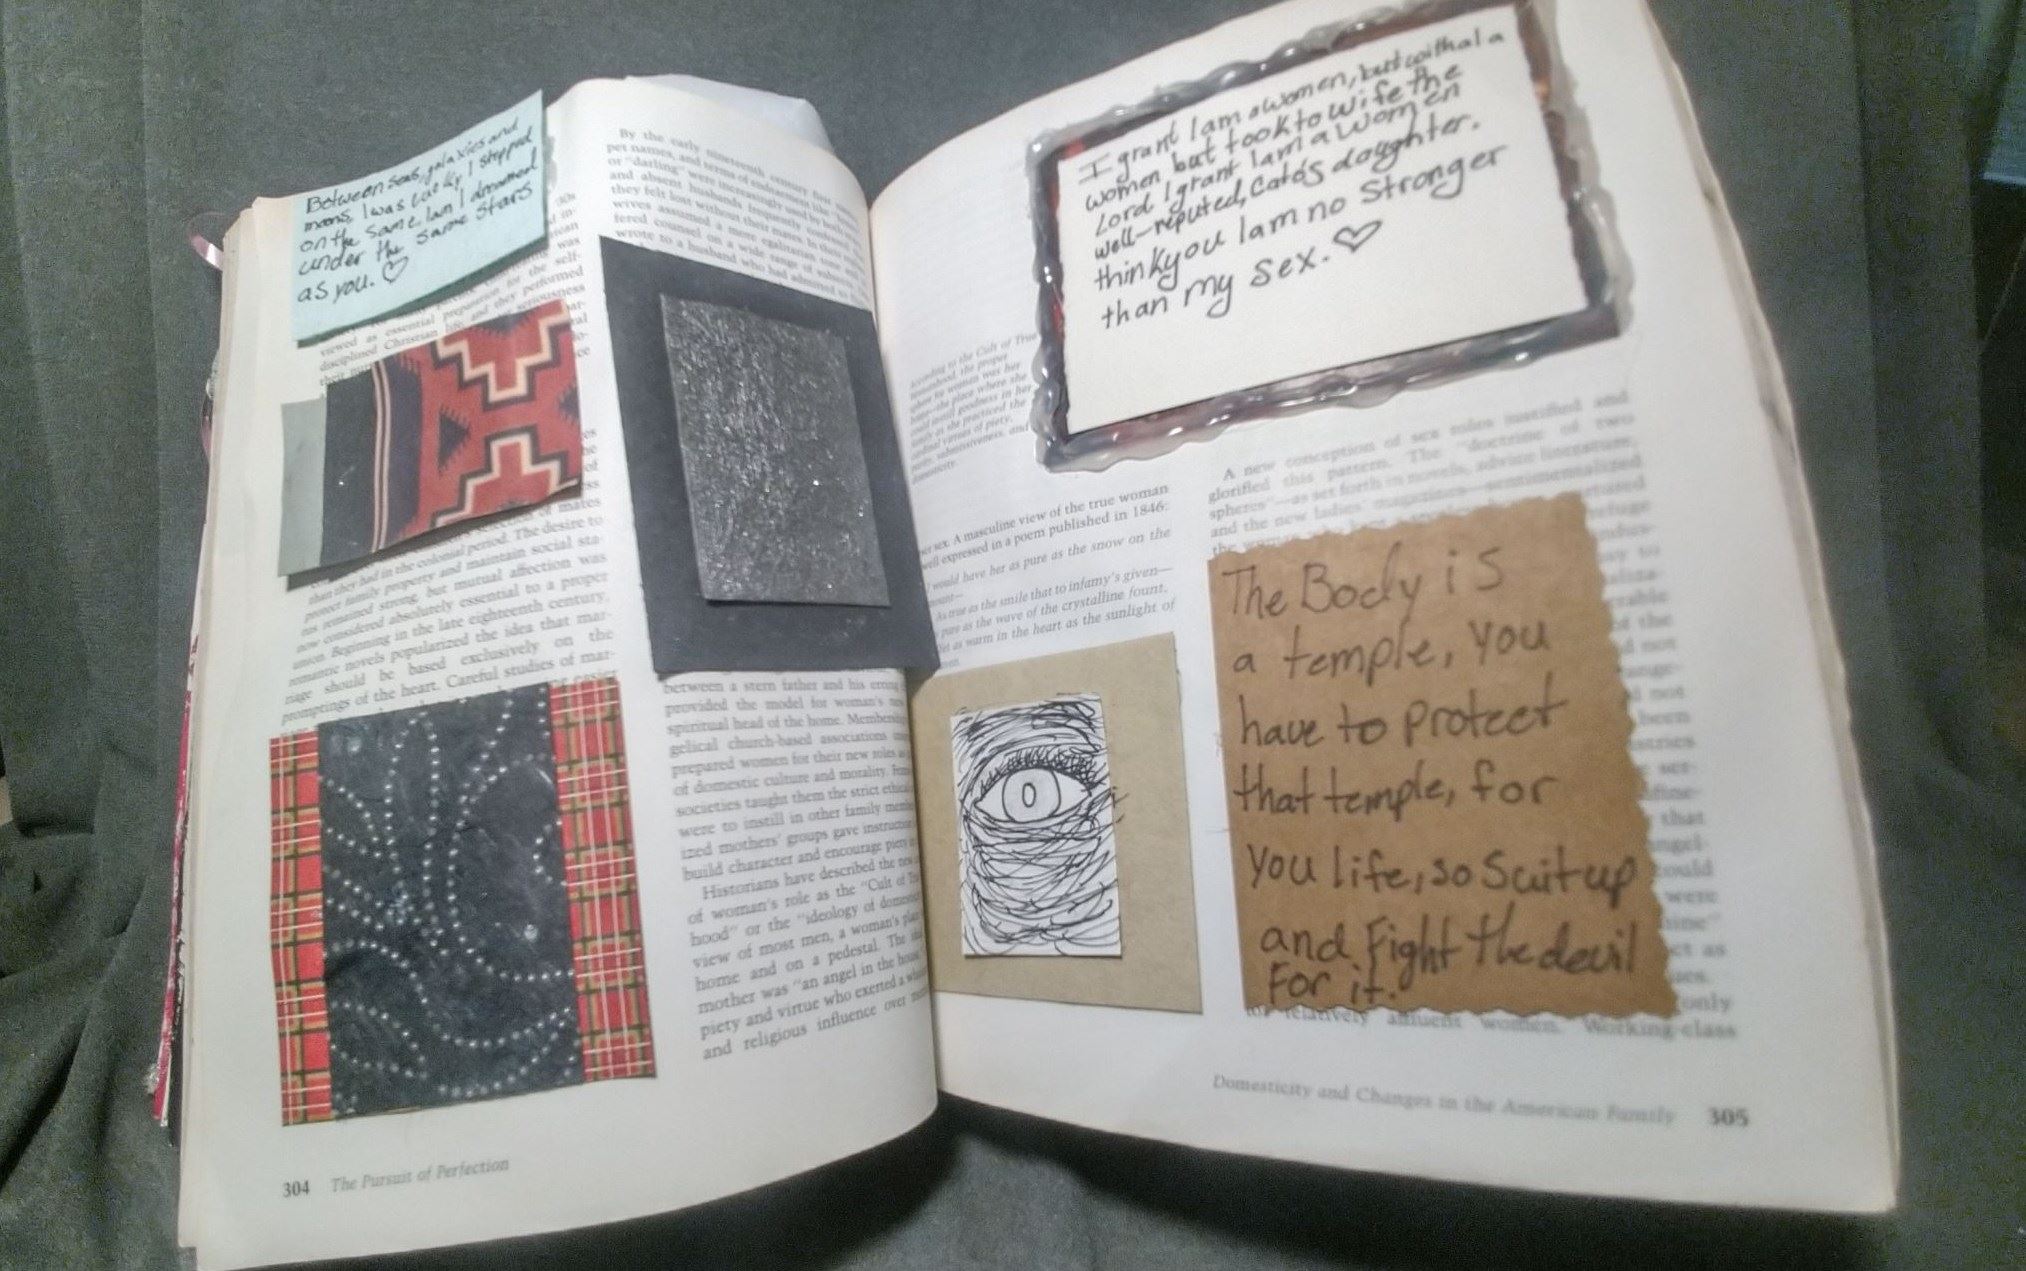 Between seas, galaxies and
moons, I was lucky I stepped
on the same lan I dreamed
under the same stars
as you. ♡
viewed as essential preparation for the self-
disciplined Christian life, and they performed
than they had in the colonial period. The desire to
protect family property and maintain social sta-
tus remained strong, but mutual affection was
now considered absolutely essential to a proper
union. Beginning in the late eighteenth century,
romantic novels popularized the idea that mar-
riage should be based exclusively on the
promptings of the heart. Careful studies of mar-
304 The Pursuit of Perfection
By the early nineteenth century first names,
pet names, and terms of endearment like
or "darling" were increasingly used by both
and absent husbands frequently confessed
they felt lost without their mates. In their
wives assumed a more egalitarian tone
fered counsel on a wide range of subjects
wrote to a husband who had admitted
between a stern father and his erring
provided the model for woman's
spiritual head of the home. Membership
gelical church-based associations
prepared women for their new roles as
of domestic culture and morality.
societies taught them the strict ethical
were to instill in other family members
ized mothers' groups gave instruction
build character and encourage piety
Historians have described the new
of woman's role as the "Cult of True
hood" or the "ideology of domesticity
view of most men, a woman's place
home and on a pedestal. The
mother was "an angel in the house
piety and virtue who exerted a
and religious influence over
I grant I am a women, but withal a
women but took to wife the
Lord I grant I am a women
well-reputed, Cato's daughter.
think you I am no stronger
than my sex. ♡
According to the Cult of True
Womanhood, the proper
sphere for women was her
home—the place where she
could instill goodness in her
family as she practiced the
cardinal virtues of piety,
purity, submissiveness, and
domesticity.
her sex. A masculine view of the true woman
well expressed in a poem published in 1846:
I would have her as pure as the snow on the
mount—
As true as the smile that to infamy's given—
pure as the wave of the crystalline fount,
Yet as warm in the heart as the sunlight of
A new conception of sex roles justified and
glorified this pattern. The "doctrine of two
spheres"—as set forth in novels, advice literature,
and the new ladies' magazines—sentimentalized
The Body is
a temple, you
have to protect
that temple, for
you life, so suit up
and fight the devil
for it.
for relatively affluent women. Working-class
Domesticity and Changes in the American Family 305